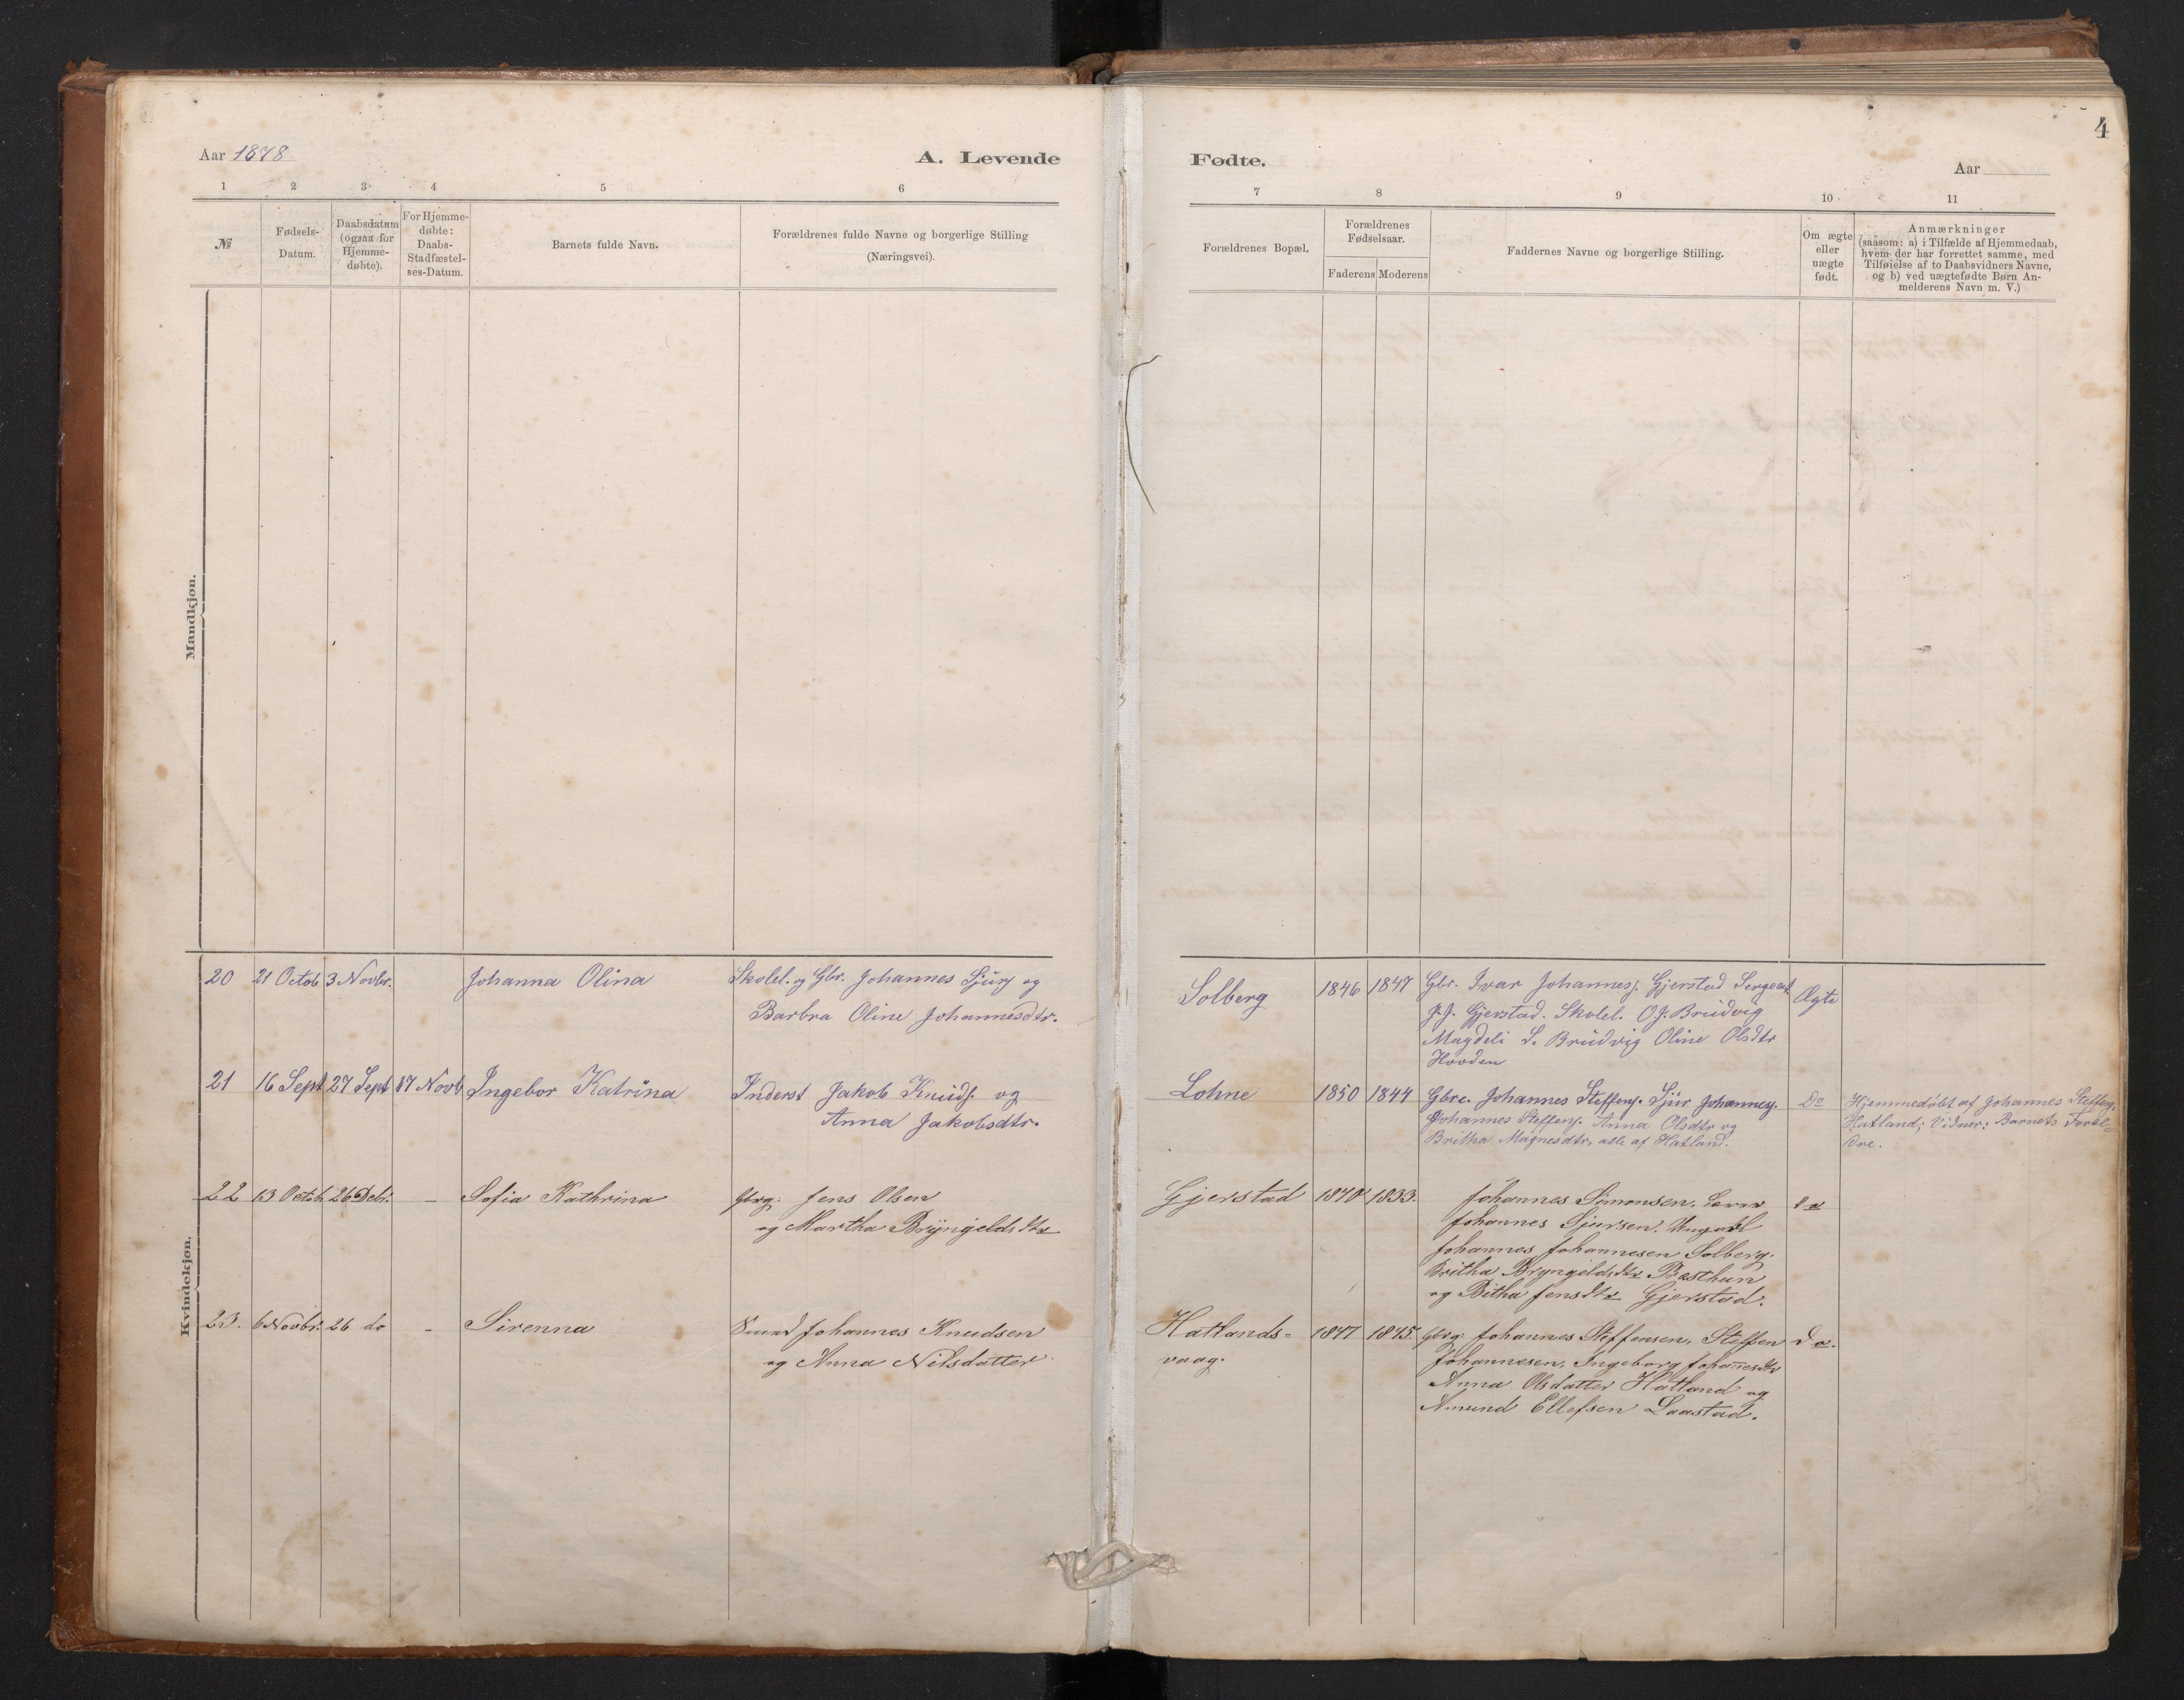 4
Aar 1878
A. Levende
Fødte.
Aar
1 2 3 4 5 6 7 8 9 10 11
№
Fødsels-
Datum.
Daabsdatum
(ogsaa for
Hjemme-
døbte).
For Hjemme-
døbte:
Daabs-
Stadfæstel-
ses-Datum.
Barnets fulde Navn.
Forældrenes fulde Navne og borgerlige Stilling
(Næringsvei).
Forældrenes Bopæl.
Forældrenes
Fødselsaar.
Faderens
Moderens
Faddernes Navne og borgerlige Stilling.
Om ægte
eller
uægte
født.
Anmærkninger
(saasom: a) i Tilfælde af Hjemmedaab,
hvem der har forrettet samme, med
Tilføielse af to Daabsvidners Navne,
og b) ved uægtefødte Børn An-
melderens Navn m. V.)
Mandkjøn.
Kvindekjøn.
20 21 Octob 3 Novbr. Johanna Olina
Skolel. og Gbr. Johannes Sjurs og
Barbra Oline Johannesdtr.
Solberg 1846 1847
Gbr. Ivar Johannes. Gjerstad Sergeat
J.J. Gjerstad. Skolel. O.J. Brudvig
Magdeli S. Brudvig Oline Olsdtr
Hovden
Ægte
21 16 Sept 27 Sept 17 Novb Ingebor Katrina
Inderst Jakob Knuds. og
Anna Jakobsdtr.
Lohne 1850 1844
Gbre. Johannes Steffens. Sjur Johannes.
Johannes Steffens. Anna Olsdtr og
Britha Magnesdtr, alle af Hatland.
Do
Hjemmedøbt af Johannes Steffens.
Hatland; Vidner: Barnets Foræl-
dre.
22 13 Octob. 26 Debr. - Sofia Kathrina
Gbrg. Jens Olsen
og Martha Bryngeldsdtr
Gjerstad 1840 1833.
Johannes Simonsen,
Johannes Sjursen, Ungkarl
Johannes Johannesen Solberg.
Britha Bryngeldsdtr Basthun
og Bitha Jensdtr Gjerstad.
do
23. 6 Novbr. 26 do - Sirenna
Johannes Knudsen
og Anna Nilsdatter
Hatlands-
vaag.
1847 1845.
Gbrg. Johannes Steffensen, Steffen
Johannesen, Ingeborg Johannesdtr
Anna Olsdatter Hatland og
Amund Ellefsen Laastad.
do.